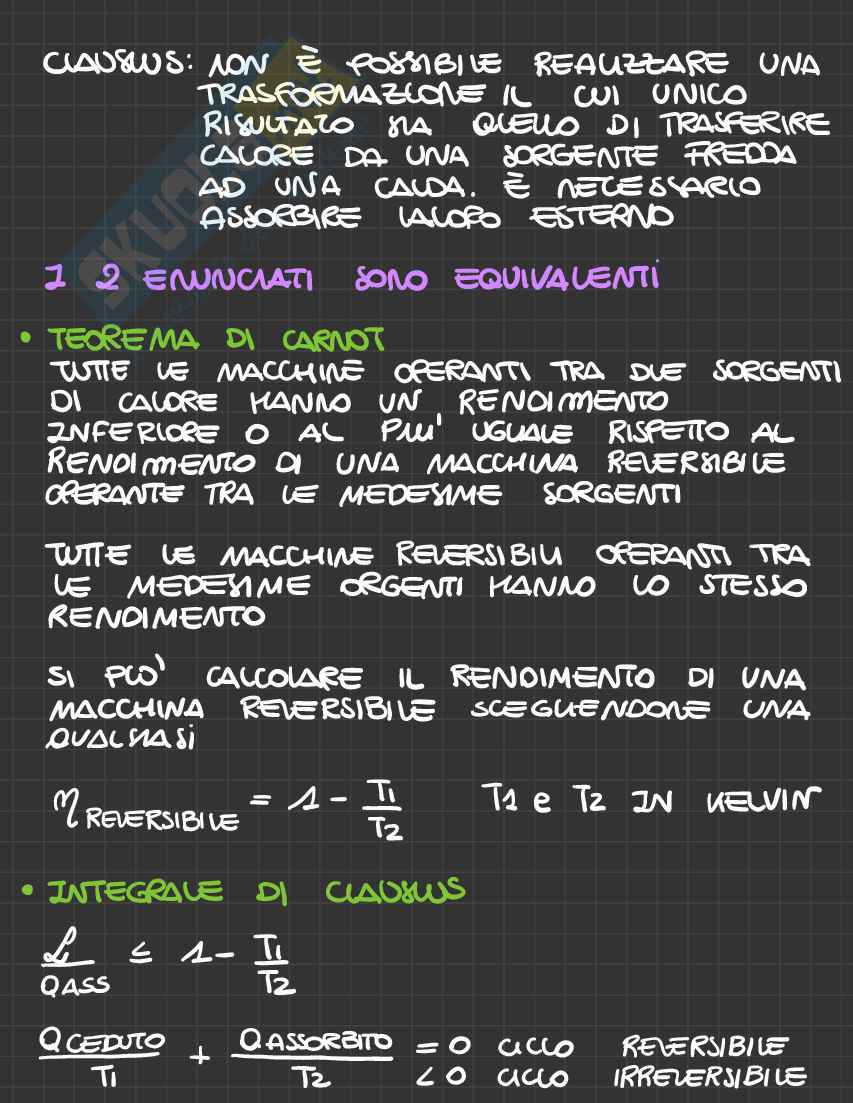 CLAUSIUS: NON È POSSIBILE REALIZZARE UNA
TRASFORMAZIONE IL CUI UNICO
RISULTATO SIA QUELLO DI TRASFERIRE
CALORE DA UNA SORGENTE FREDDA
AD UNA CALDA. È NECESSARIO
ASSORBIRE LAVORO ESTERNO
I 2 ENUNCIATI SONO EQUIVALENTI
• TEOREMA DI CARNOT
TUTTE LE MACCHINE OPERANTI TRA DUE SORGENTI
DI CALORE HANNO UN RENDIMENTO
INFERIORE O AL PIU' UGUALE RISPETTO AL
RENDIMENTO DI UNA MACCHINA REVERSIBILE
OPERANTE TRA LE MEDESIME SORGENTI
TUTTE LE MACCHINE REVERSIBILI OPERANTI TRA
LE MEDESIME ORGENTI HANNO LO STESSO
RENDIMENTO
SI PUO' CALCOLARE IL RENDIMENTO DI UNA
MACCHINA REVERSIBILE SCEGLIENDONE UNA
QUALSIASI
η REVERSIBILE = 1 - T1/T2 T1 e T2 IN KELVIN
• INTEGRALE DI CLAUSIUS
L/QASS ≤ 1 - T1/T2
QCEDUTO/T1 + QASSORBITO/T2 = 0 CICLO REVERSIBILE
< 0 CICLO IRREVERSIBILE